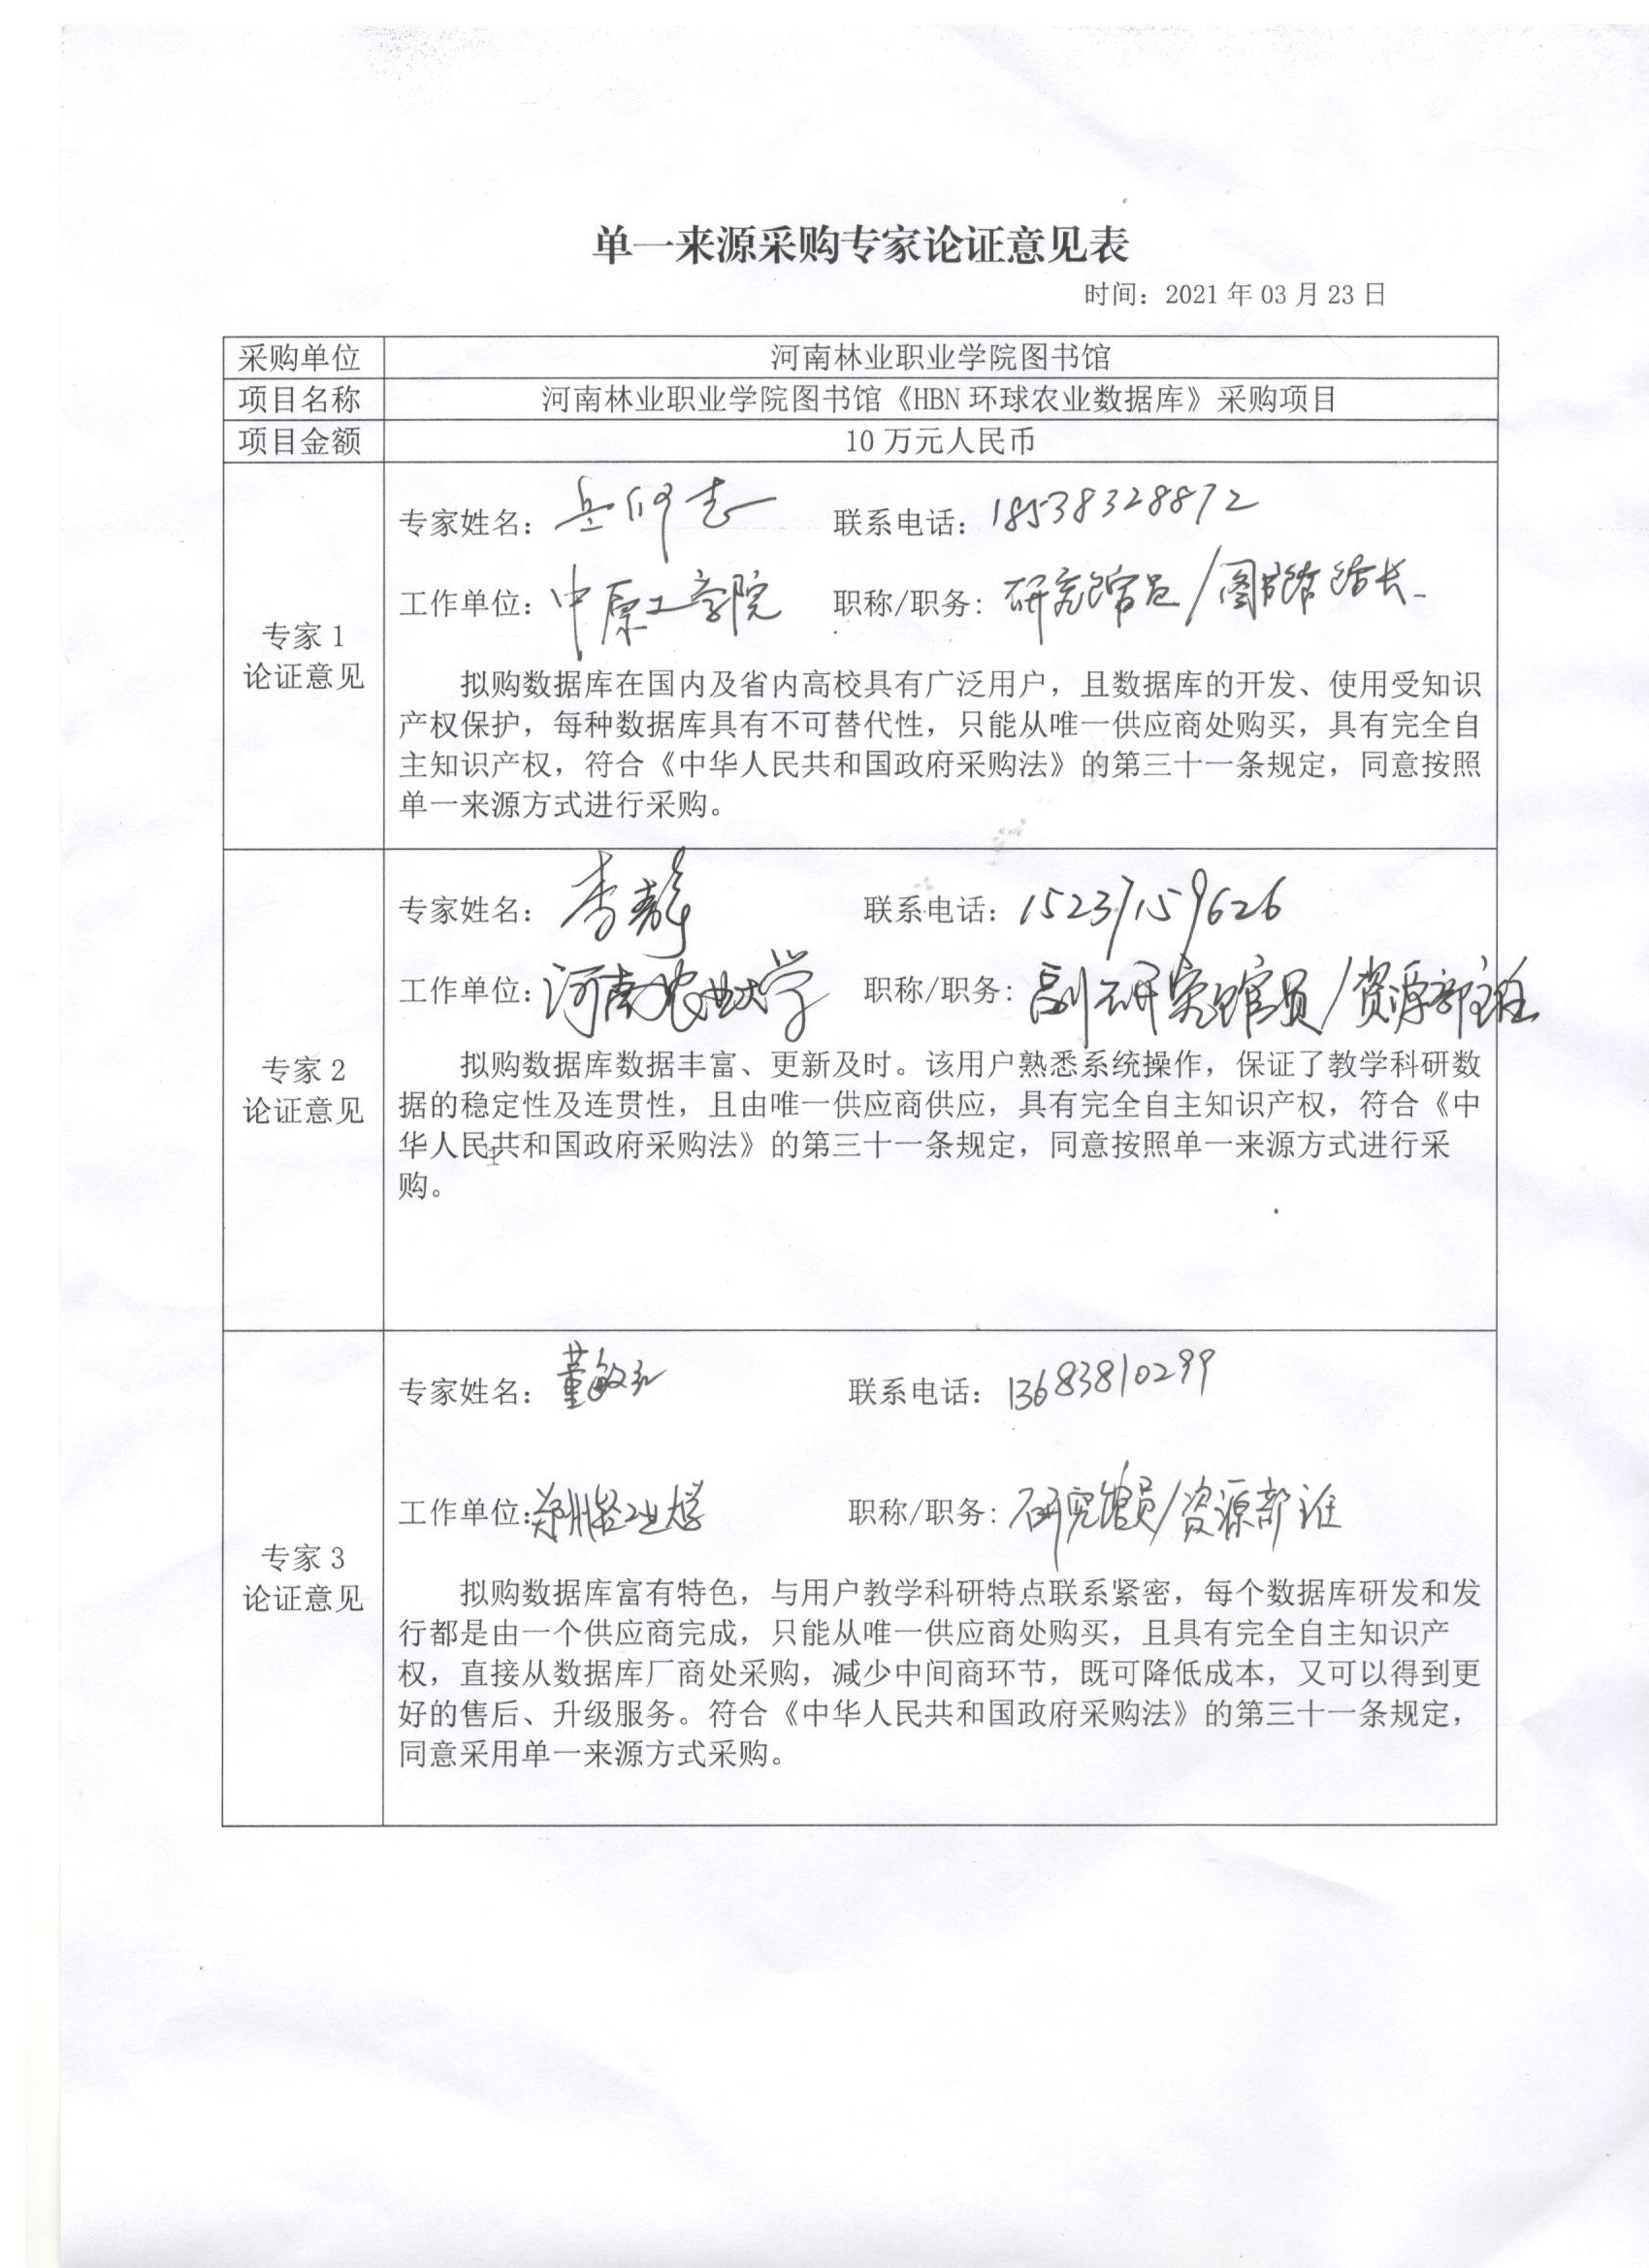 单一来源采购专家论证意见表
时间：2021年03月23日
采购单位 河南林业职业学院图书馆
项目名称 河南林业职业学院图书馆《HBN环球农业数据库》采购项目
项目金额 10万元人民币
专家姓名：岳修志 联系电话：18538328872
工作单位：中原工学院 职称/职务：研究馆员/图书馆馆长
专家1
论证意见
拟购数据库在国内及省内高校具有广泛用户，且数据库的开发、使用受知识
产权保护，每种数据库具有不可替代性，只能从唯一供应商处购买，具有完全自
主知识产权，符合《中华人民共和国政府采购法》的第三十一条规定，同意按照
单一来源方式进行采购。
专家姓名：李静 联系电话：15237159626
工作单位：河南农业大学 职称/职务：副研究馆员/资源部主任
专家2
论证意见
拟购数据库数据丰富、更新及时。该用户熟悉系统操作，保证了教学科研数
据的稳定性及连贯性，且由唯一供应商供应，具有完全自主知识产权，符合《中
华人民共和国政府采购法》的第三十一条规定，同意按照单一来源方式进行采
购。
1
专家姓名：董敏 联系电话：13683810299
工作单位：郑州轻工业大学 职称/职务：研究馆员/资源部主任
专家3
论证意见
拟购数据库富有特色，与用户教学科研特点联系紧密，每个数据库研发和发
行都是由一个供应商完成，只能从唯一供应商处购买，且具有完全自主知识产
权，直接从数据库厂商处采购，减少中间商环节，既可降低成本，又可以得到更
好的售后、升级服务。符合《中华人民共和国政府采购法》的第三十一条规定，
同意采用单一来源方式采购。